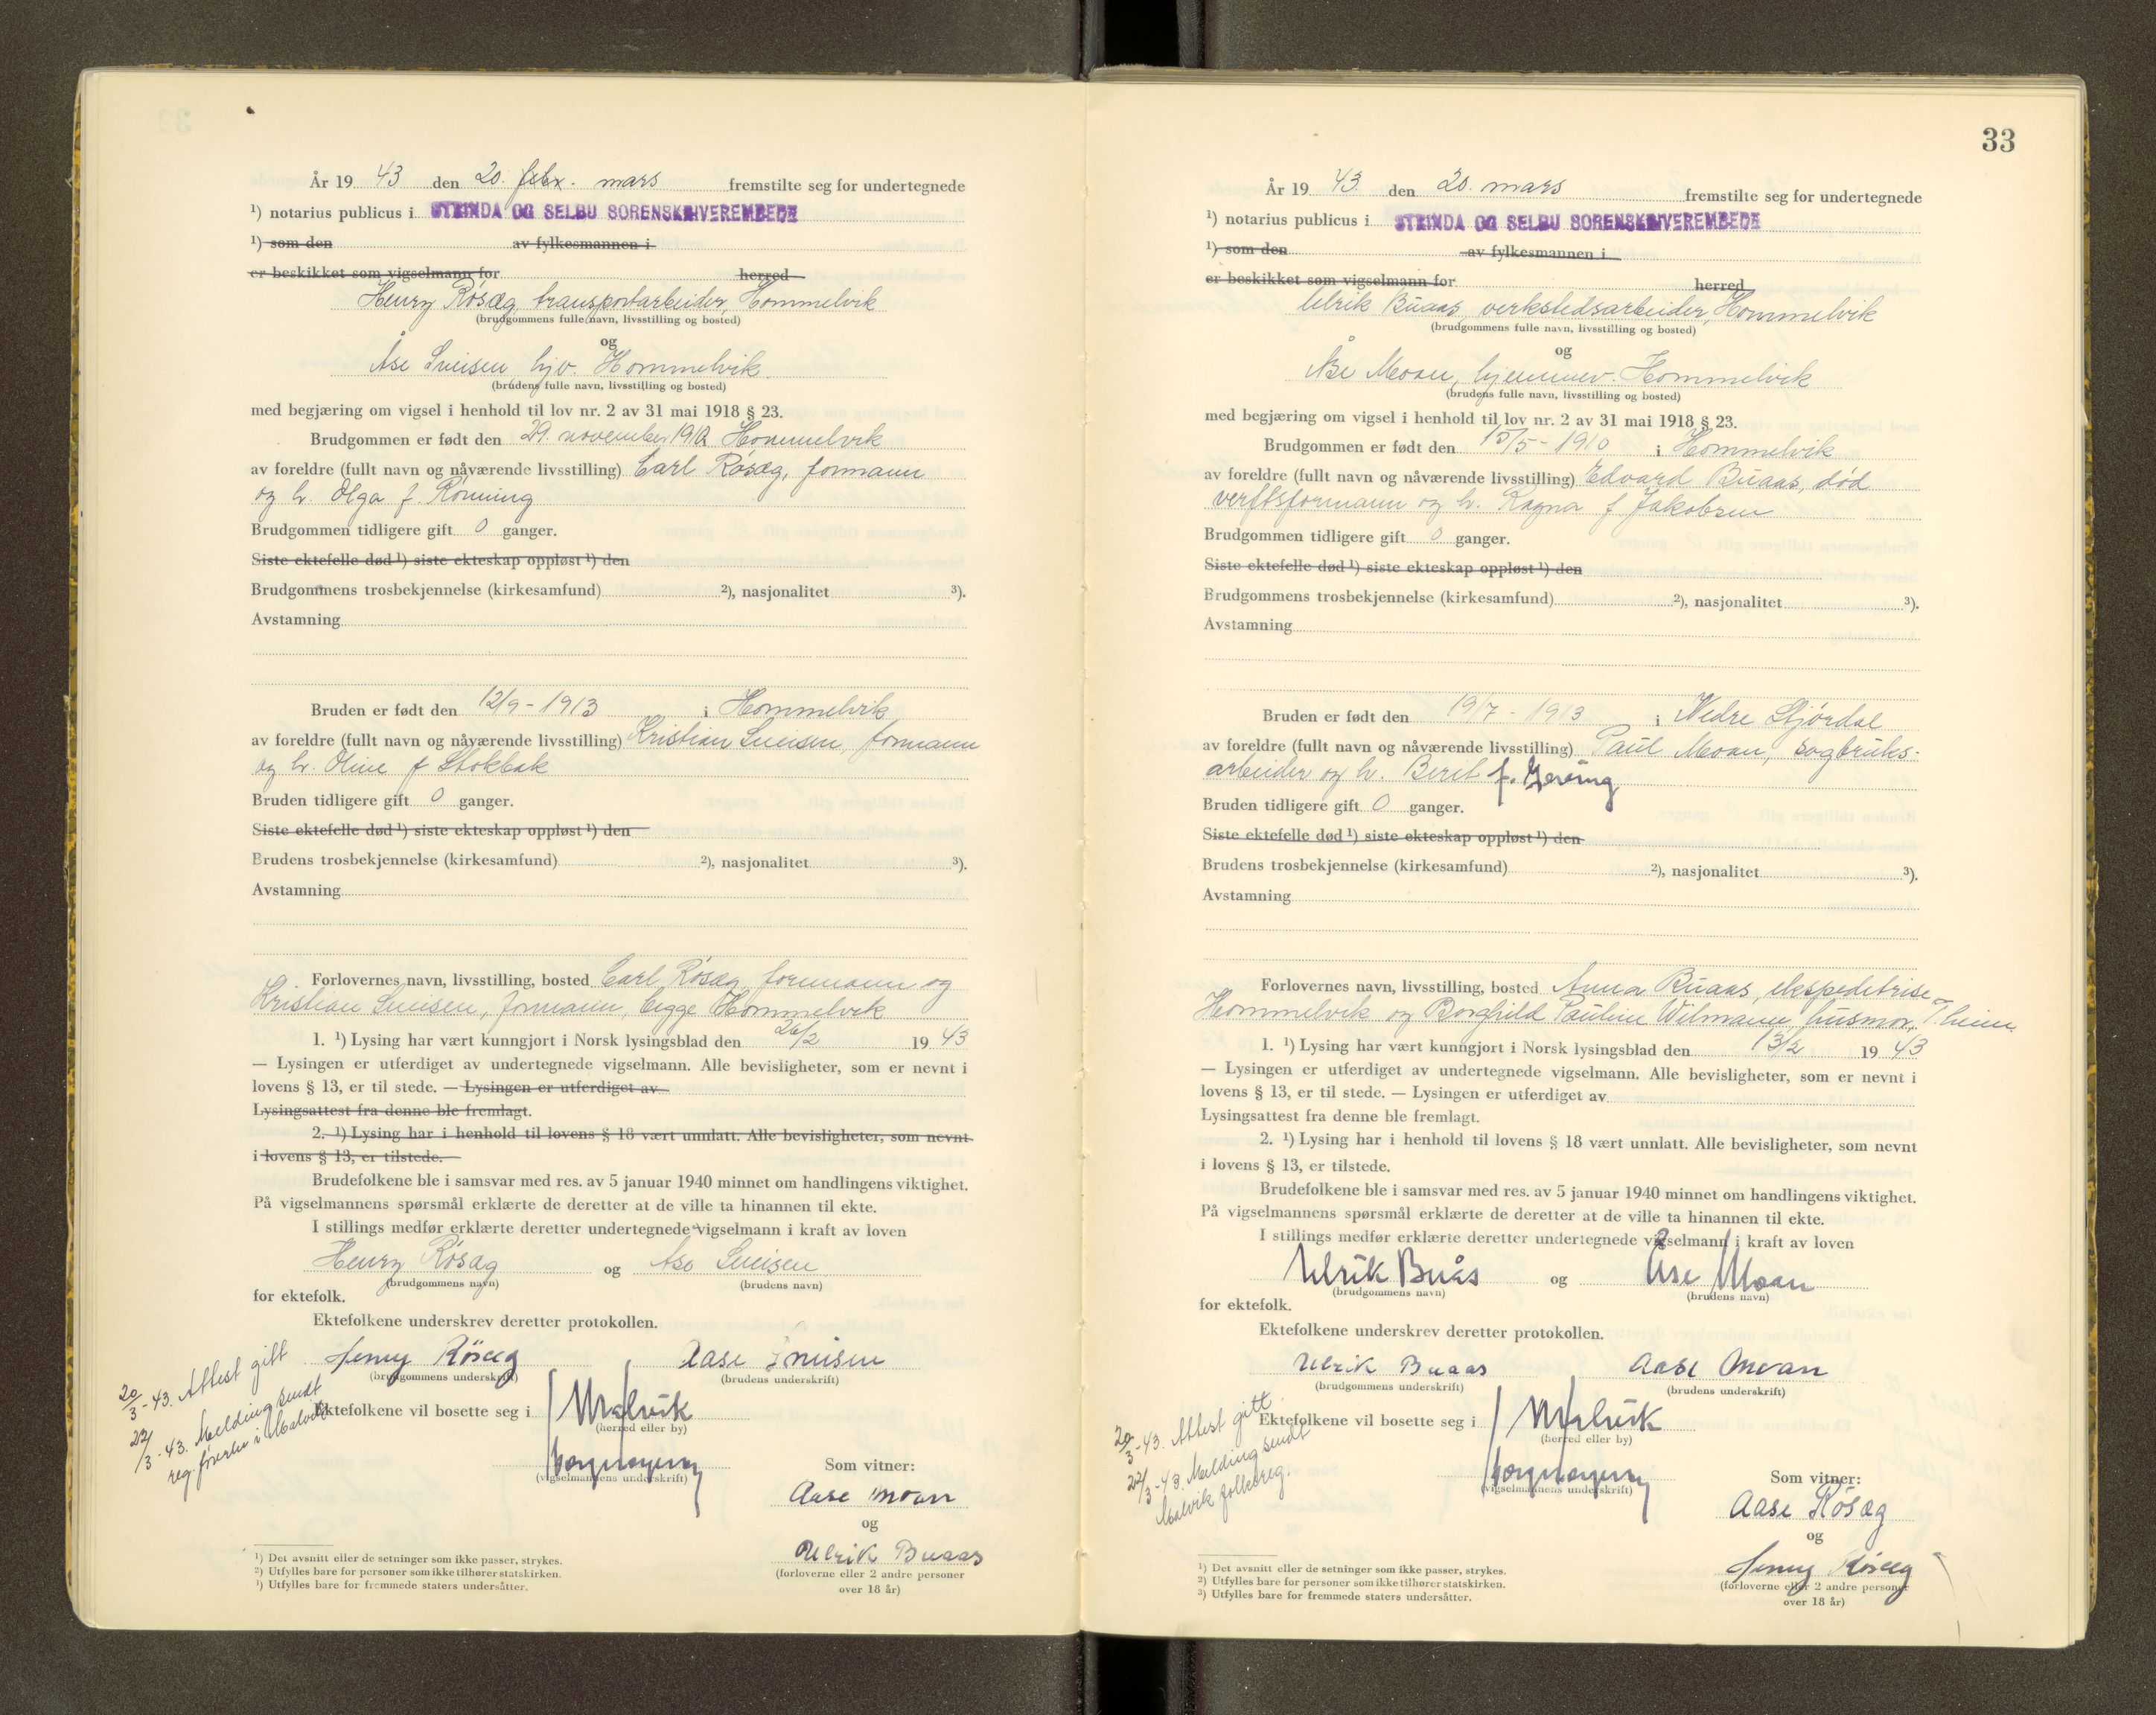 År 19 43 den 20. febr. mars fremstilte seg for undertegnede
¹) notarius publicus i STRINDA OG SELBU SORENSKRIVEREMBEDE
¹) som den av fylkesmannen i
er beskikket som vigselmann for herred
Henry Røsæg transportarbeider, Hommelvik
(brudgommens fulle navn, livsstilling og bosted)
og
Åse Sneisen hjv. Hommelvik
(brudens fulle navn, livsstilling og bosted)
med begjæring om vigsel i henhold til lov nr. 2 av 31 mai 1918 § 23.
Brudgommen er født den 29. november 1912 Hommelvik
av foreldre (fullt navn og nåværende livsstilling) Carl Røsæg, formann
og h. Olga f. Rønning
Brudgommen tidligere gift 0 ganger.
Siste ektefelle død ¹) siste ekteskap oppløst ¹) den
Brudgommens trosbekjennelse (kirkesamfund) ²), nasjonalitet ³).
Avstamning
Bruden er født den 12/9 - 1913 i Hommelvik
av foreldre (fullt navn og nåværende livsstilling) Kristian Sneisen, formann
og h. Oline f Stokbak
Bruden tidligere gift 0 ganger.
Siste ektefelle død ¹) siste ekteskap oppløst ¹) den
Brudens trosbekjennelse (kirkesamfund) ²), nasjonalitet ³).
Avstamning
Forlovernes navn, livsstilling, bosted Carl Røsæg, formann og
Kristian Sneisen, formann, begge Hommelvik
1. ¹) Lysing har vært kunngjort i Norsk lysingsblad den 26/2 19 43
— Lysingen er utferdiget av undertegnede vigselmann. Alle bevisligheter, som er nevnt i
lovens § 13, er til stede. — Lysingen er utferdiget av
Lysingsattest fra denne ble fremlagt.
2. ¹) Lysing har i henhold til lovens § 18 vært unnlatt. Alle bevisligheter, som nevnt
i lovens § 13, er tilstede.
Brudefolkene ble i samsvar med res. av 5 januar 1940 minnet om handlingens viktighet.
På vigselmannens spørsmål erklærte de deretter at de ville ta hinannen til ekte.
I stillings medfør erklærte deretter undertegnede vigselmann i kraft av loven
Henry Røsæg og Åse Sneisen
(brudgommens navn) (brudens navn)
for ektefolk.
Ektefolkene underskrev deretter protokollen.
Henry Røsæg Aase Sneisen
(brudgommens underskrift) (brudens underskrift)
20/3-43. Attest gitt
22/3-43. Melding sendt
reg.fører i Malvik
Ektefolkene vil bosette seg i Malvik
(herred eller by)
(vigselmannens underskrift)
Som vitner:
Aase Moan
og
Ulrik Buaas
(forloverne eller 2 andre personer
over 18 år)
¹) Det avsnitt eller de setninger som ikke passer, strykes.
²) Utfylles bare for personer som ikke tilhører statskirken.
³) Utfylles bare for fremmede staters undersåtter.
33
År 19 43 den 20. mars fremstilte seg for undertegnede
¹) notarius publicus i STRINDA OG SELBU SORENSKRIVEREMBEDE
¹) som den av fylkesmannen i
er beskikket som vigselmann for herred
Ulrik Buaas, verkstedsarbeider, Hommelvik
(brudgommens fulle navn, livsstilling og bosted)
og
Åse Moan, hjemmev. Hommelvik
(brudens fulle navn, livsstilling og bosted)
med begjæring om vigsel i henhold til lov nr. 2 av 31 mai 1918 § 23.
Brudgommen er født den 15/5 - 1910 i Hommelvik
av foreldre (fullt navn og nåværende livsstilling) Edvard Buaas, død
verftsformann og h. Ragna f Jakobsen
Brudgommen tidligere gift 0 ganger.
Siste ektefelle død ¹) siste ekteskap oppløst ¹) den
Brudgommens trosbekjennelse (kirkesamfund) ²), nasjonalitet ³).
Avstamning
Bruden er født den 19/7 - 1913 i Nedre Stjørdal
av foreldre (fullt navn og nåværende livsstilling) Paul Moan, sagbruks-
arbeider og h. Berit f.
Bruden tidligere gift 0 ganger.
Siste ektefelle død ¹) siste ekteskap oppløst ¹) den
Brudens trosbekjennelse (kirkesamfund) ²), nasjonalitet ³).
Avstamning
Forlovernes navn, livsstilling, bosted Anna Buaas, ekspeditrise
Hommelvik og Borghild Pauline Wilmann, husmor, T.heim
1. ¹) Lysing har vært kunngjort i Norsk lysingsblad den 13/2 19 43
— Lysingen er utferdiget av undertegnede vigselmann. Alle bevisligheter, som er nevnt i
lovens § 13, er til stede. — Lysingen er utferdiget av
Lysingsattest fra denne ble fremlagt.
2. ¹) Lysing har i henhold til lovens § 18 vært unnlatt. Alle bevisligheter, som nevnt
i lovens § 13, er tilstede.
Brudefolkene ble i samsvar med res. av 5 januar 1940 minnet om handlingens viktighet.
På vigselmannens spørsmål erklærte de deretter at de ville ta hinannen til ekte.
I stillings medfør erklærte deretter undertegnede vigselmann i kraft av loven
Ulrik Buås og Åse Moan
(brudgommens navn) (brudens navn)
for ektefolk.
Ektefolkene underskrev deretter protokollen.
Ulrik Buaas Aase Moan
(brudgommens underskrift) (brudens underskrift)
20/3-43. Attest gitt
22/3-43. Melding sendt
Malvik folkereg.
Ektefolkene vil bosette seg i Malvik
(herred eller by)
(vigselmannens underskrift)
Som vitner:
Aase Røsæg
og
Henry Røsæg
(forloverne eller 2 andre personer
over 18 år)
¹) Det avsnitt eller de setninger som ikke passer, strykes.
²) Utfylles bare for personer som ikke tilhører statskirken.
³) Utfylles bare for fremmede staters undersåtter.